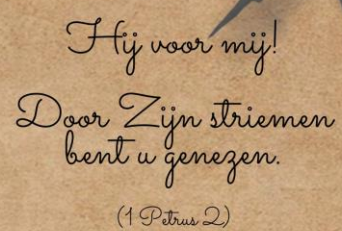 Hij voor mij!
Door Zijn striemen
bent u genezen.
(1 Petrus 2)